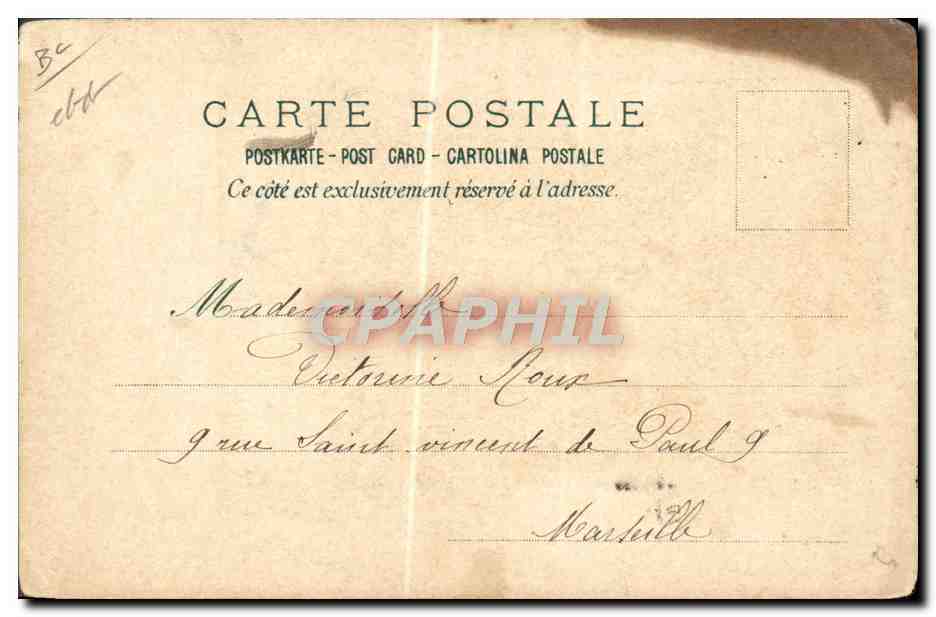 Bc
CARTE POSTALE
POSTKARTE - POST CARD - CARTOLINA POSTALE
Ce côté est exclusivement réservé à l'adresse.
Mademoiselle
CPAPHIL
Victorine Roux
9 rue Saint vincent de Paul 9
Marseille